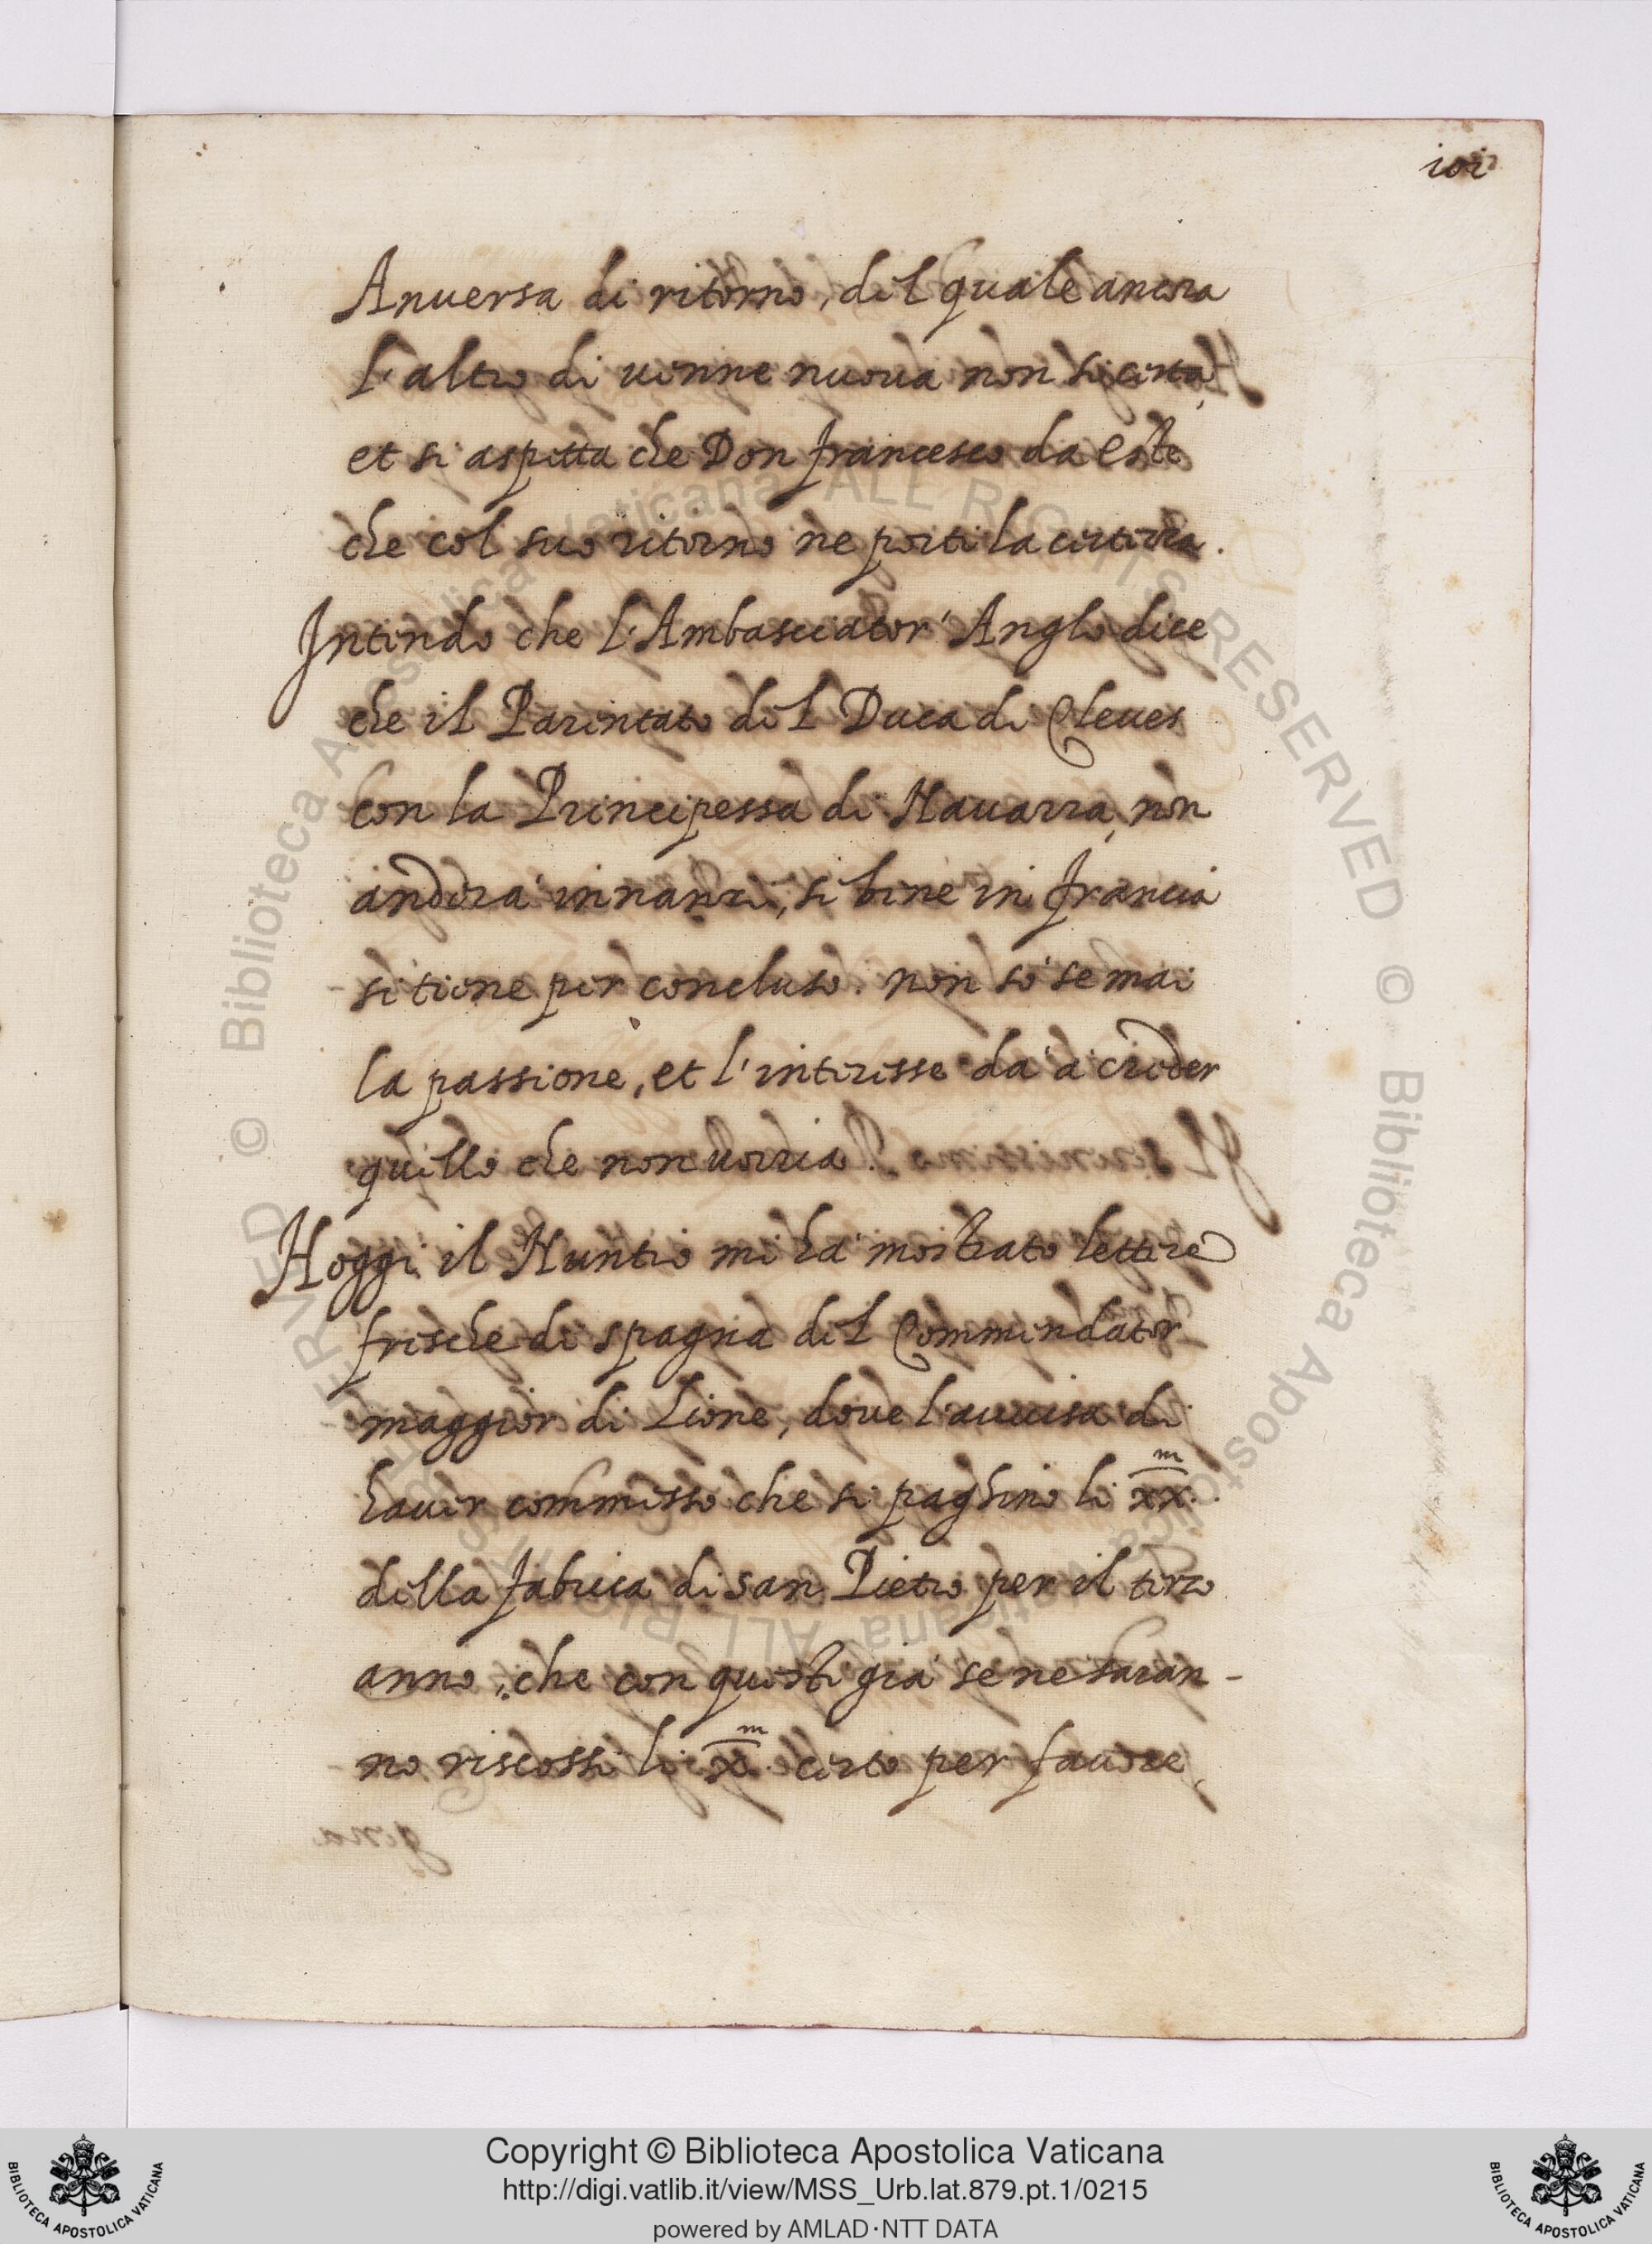 101
Anversa di ritorno, del quale ancora
l'altro di venne nuova non si certa,
et si aspetta che Don Francesco da Este
che col suo ritorno ne porti la certezza.
Intendo che l'Ambasciator Anglo dice
che il Parentato del Duca di Cleves
con la Principessa di Navarra, non
anderà innanzi, se bene in Francia
si tiene per concluso. non sò se mai
la passione, et l'interesse dà à creder
quello che non vorria.
Hoggi il Nuntio mi hà mostrato lettere
fresche di spagna del Commendator
maggior di Lione, dove l'avvisa di
haver commesso che si paghino li xx.m
della fabrica di san Pietro per il terzo
anno, che con questi già se ne saran-
no riscossi li x.m certo per favore
Copyright © Biblioteca Apostolica Vaticana
http://digi.vatlib.it/view/MSS_Urb.lat.879.pt.1/0215
powered by AMLAD·NTT DATA